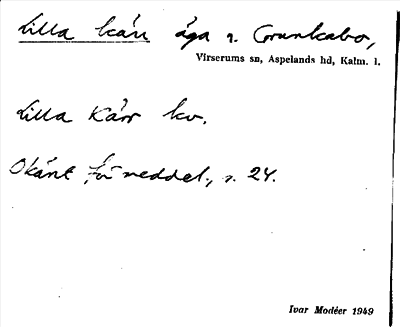 Lilla kärr äga s. Grunkabo,
Virserums sn, Aspelands hd, Kalm. l.
Lilla Kärr kv.
Okänt för meddel., s. 24.
Ivar Modéer 1949